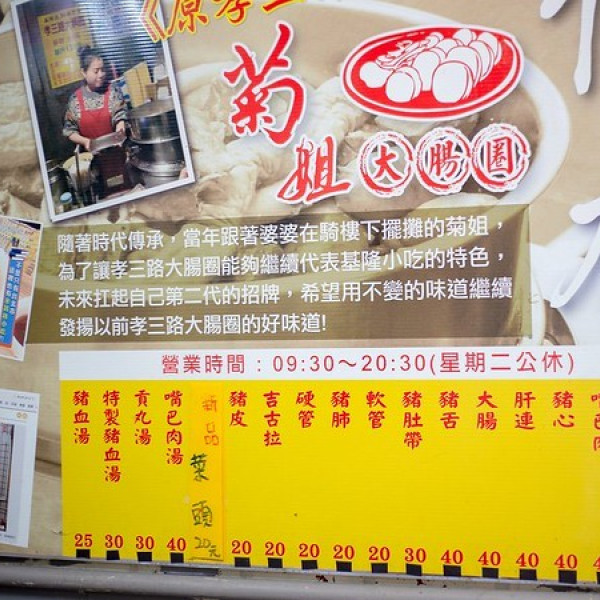 《原孝三
菊姐
大腸圈
隨著時代傳承，當年跟著婆婆在騎樓下擺攤的菊姐，
為了讓孝三路大腸圈能夠繼續代表基隆小吃的特色，
未來扛起自己第二代的招牌，希望用不變的味道繼續
發揚以前孝三路大腸圈的好味道!
營業時間：09:30～20:30(星期二公休)
豬血湯 25
特製豬血湯 30
貢丸湯 30
嘴巴肉湯 40
新品 菜頭 20元
豬皮 20
吉古拉 20
硬管 20
豬肺 20
軟管 20
豬肚帶 30
豬舌 40
大腸 40
肝連 40
豬心 40
嘴巴肉 4